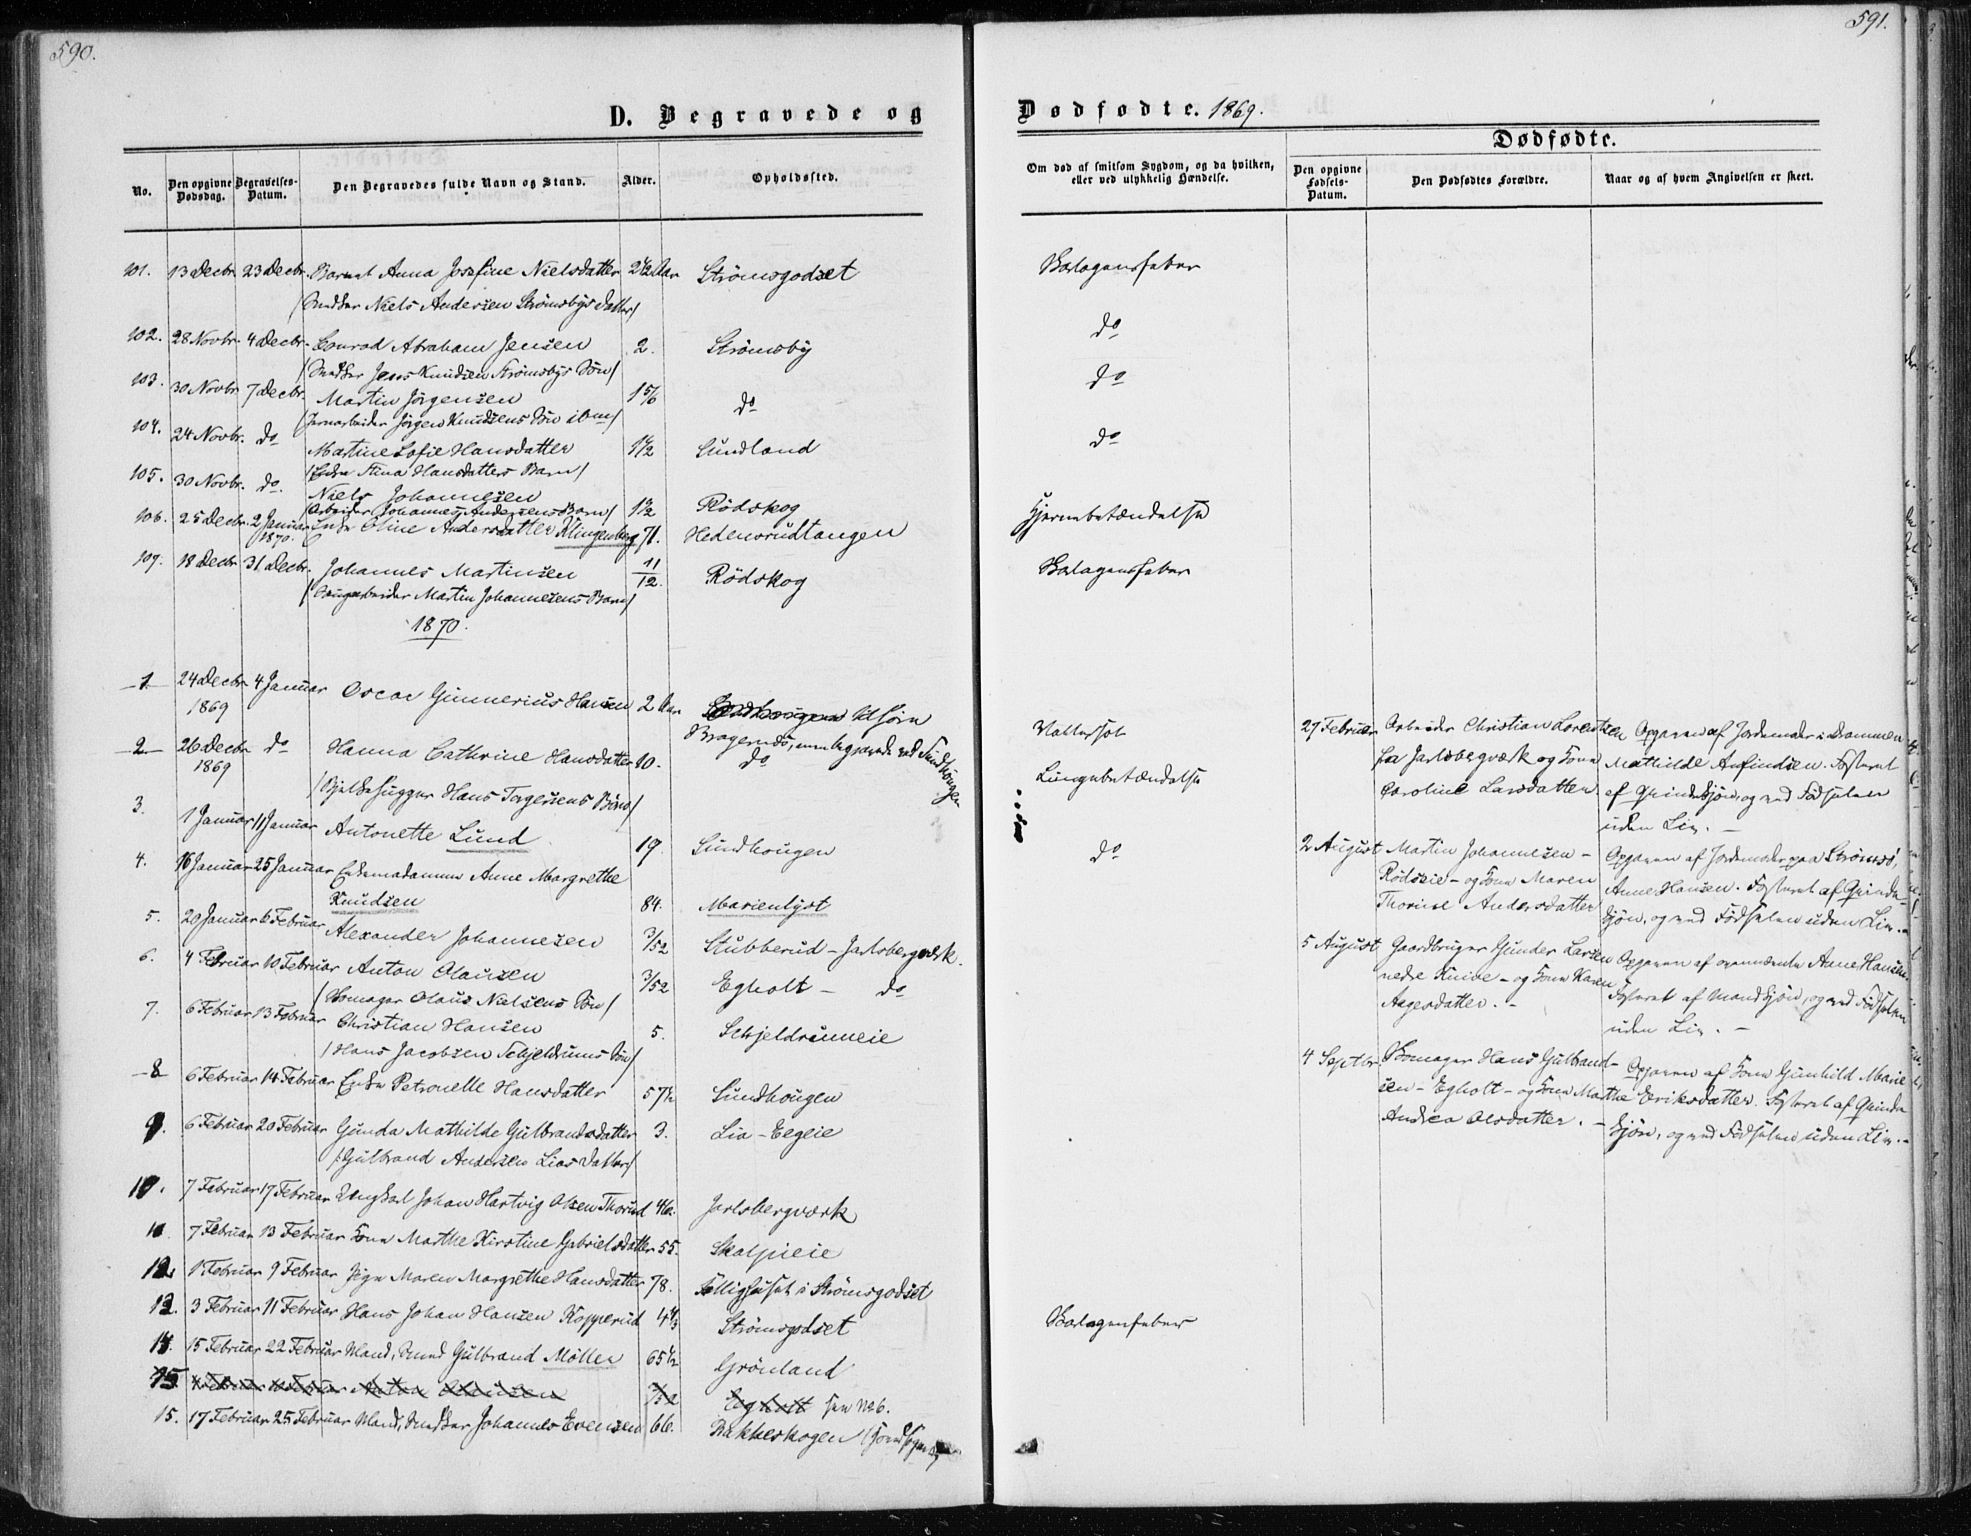 590.
D. Begravede og
No.
Den opgivne Dødsdag.
Begravelses-Datum.
Den Begravedes fulde Navn og Stand.
Alder.
Opholdssted.
101. 13 Decbr. 23 Decbr. Barnet Anna Josefine Nielsdatter 2½ Aar Strömsgodset
Niels Andersen Strömsbys Datter/
102. 28 Novbr. 4 Decbr. Conrad Abraham Jensen 2. Strömsby
Jens Knudsen Strömsbys Sön/
103. 30 Novbr. 7 Decbr. Martin Jörgensen 1 5/6 do
Jörgen Knudsens Sön ibm/
104. 24 Novbr. do Martine Sofie Hansdatter 1½ Sundland
/Enke Hansdatters Barn/
105. 30 Novbr. do. Niels Johannesen
/Arbeider Johannes Andersens Barn/ 1½ Rödskog
106. 25 Decbr. 2 Januar 1870. Enke Oline Andersdatter Klingenberg 71. Hedensrudtangen
107. 18 Decbr. 31. Decbr. Johannes Martinsen 11/12. Rödskog
Martin Johannesens Barn/
1870.
1 24 Decbr 1869 4 Januar Oscar Gunnerius Hansen 2 Aar
Bragernes, men begravede ved Sundhougen
2 26 Decbr 1869 do Hanna Cathrine Hansdatter 10. do
/Bjelkehugger Hans Torgersens Börn/
3. 1 Januar 11 Januar Antonette Lund 19. Sundhougen
4. 16 Januar 25 Januar Enkemadamme Anne Margrethe
Knudsen 84. Marienlyst
5. 20 Januar 6 Februar Alexander Johannesen 3/52 Stubberud – Jarlsbergværk.
6. 4 Februar 10 Februar Anton Olausen 3/52 Egholt – do
/Skomager Olaus Nielsens Sön/
7. 6 Februar 13 Februar Christian Hansen 5. Schjeldrumeie
/Hans Jacobsen Schjeldrums Sön/
8 6 Februar 14 Februar Enke Petronelle Hansdatter 57½ Sundhougen
9. 6 Februar 20 Februar Gunda Mathilde Gulbrandsdatter 3. Lia – Eegeie
/Gulbrand Andersen Lias Datter/
10. 7 Februar 17 Februar Ungkarl Johan Hartvig Olsen Thorud 46. Jarlsbergværk
11. 7 Februar 13 Februar Kone Marthe Kirstine Gabrielsdatter 55. Skalpieie
12. 1 Februar 9 Februar Pige Maren Margrethe Hansdatter 78. Fattighuset i Strömsgodset
13. 3 Februar 11 Februar Hans Johan Hansen Kopperud Strömsgodset
14. 15 Februar 22 Februar Mand, Smed Gulbrand Möller 65½ Grönland
15 Anton Olausen 3/52 Egholt see No 6.
15. 17 Februar 25 Februar Mand, Johannes Evensen 66. Bakkeskogen
591.
Dødfødte. 1869.
Om død af smitsom Sygdom, og da hvilken, eller ved ulykkelig Hændelse.
Dødfødte.
Den opgivne Fødsels-Datum.
Den Dødfødtes Forældre.
Naar og af hvem Angivelsen er skeet.
Skarlagensfeber
do
do
do
Hjernebetændelse
Skarlagensfeber
Lungebetændelse
do
Skarlagenfeber
27 Februar Arbeider Christian Lorentzen
fra Jarlsbergværk og Kone
Caroline Larsdatter
Opgaven af Jordemoder i Drammen
Mathilde Anfindsen. Fosteret
af Qvindekjön, og ved Födselen
uden Liv. –
2 August Martin Johannesen –
Rödskie – og Kone Maren
Thorine Andersdatter
Opgaven af Jordemoder paa Strömsö,
Anne Hansen. Fosteret af Qvinde-
kjön, og ved Födselen uden Liv. –
5 August Gaardbruger Gunder Larsen
nedre Knive – og Kone Karen
Aagesdatter. –
Opgaven af ovennævnte Anne Hansen.
Fosteret af Mandkjön, og ved Födselen
uden Liv. –
4 Septbr. Skomager Hans Gulbrand-
sen – Egholt – og Kone Marthe
Andrea Olsdatter. –
Opgaven af Kone Gunhild Marie
Eriksdatter. Fosteret af Qvinde-
kjön, og ved Födselen uden Liv. –